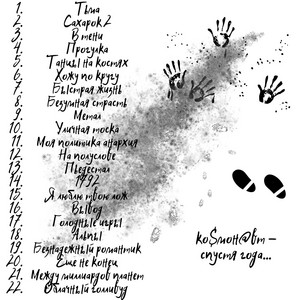 1. Тьма
2. Сахарок 2
3. В тени
4. Прогулка
5. Танцы на костях
6. Хожу по кругу
7. Быстрая жизнь
8. Безумная страсть
9. Метал
10. Уличная тоска
11. Моя политика анархия
12. На полуслове
13. Пьедестал
14. 1992
15. Я люблю твою ложь
16. Вывод
17. Голодные игры
18. Альпы
19. Безнадежный романтик
20. Еще не конец
21. Между миллиардов планет
22. Облачный Голливуд
ko$мон@вт –
спустя года...